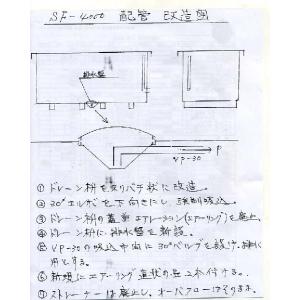 SF-4000 配管 改造図
排水盤
P
VP-30
① ドレーン桝をすりバチ状に改造。
② 90°エルボを下向きにし、強制吸込。
③ ドレーン桝の蓋兼エアレーション(エアーリング)を廃止。
④ ドレーン桝に、排水盤を新設。
⑤ VP-30の吸込中向に30°ベルブを設け、排水
用とする。
⑥ 新規にエアーリング 直状の 2本付ける。
⑦ ストレーナーは廃止し、オーバーフローはそのまま。